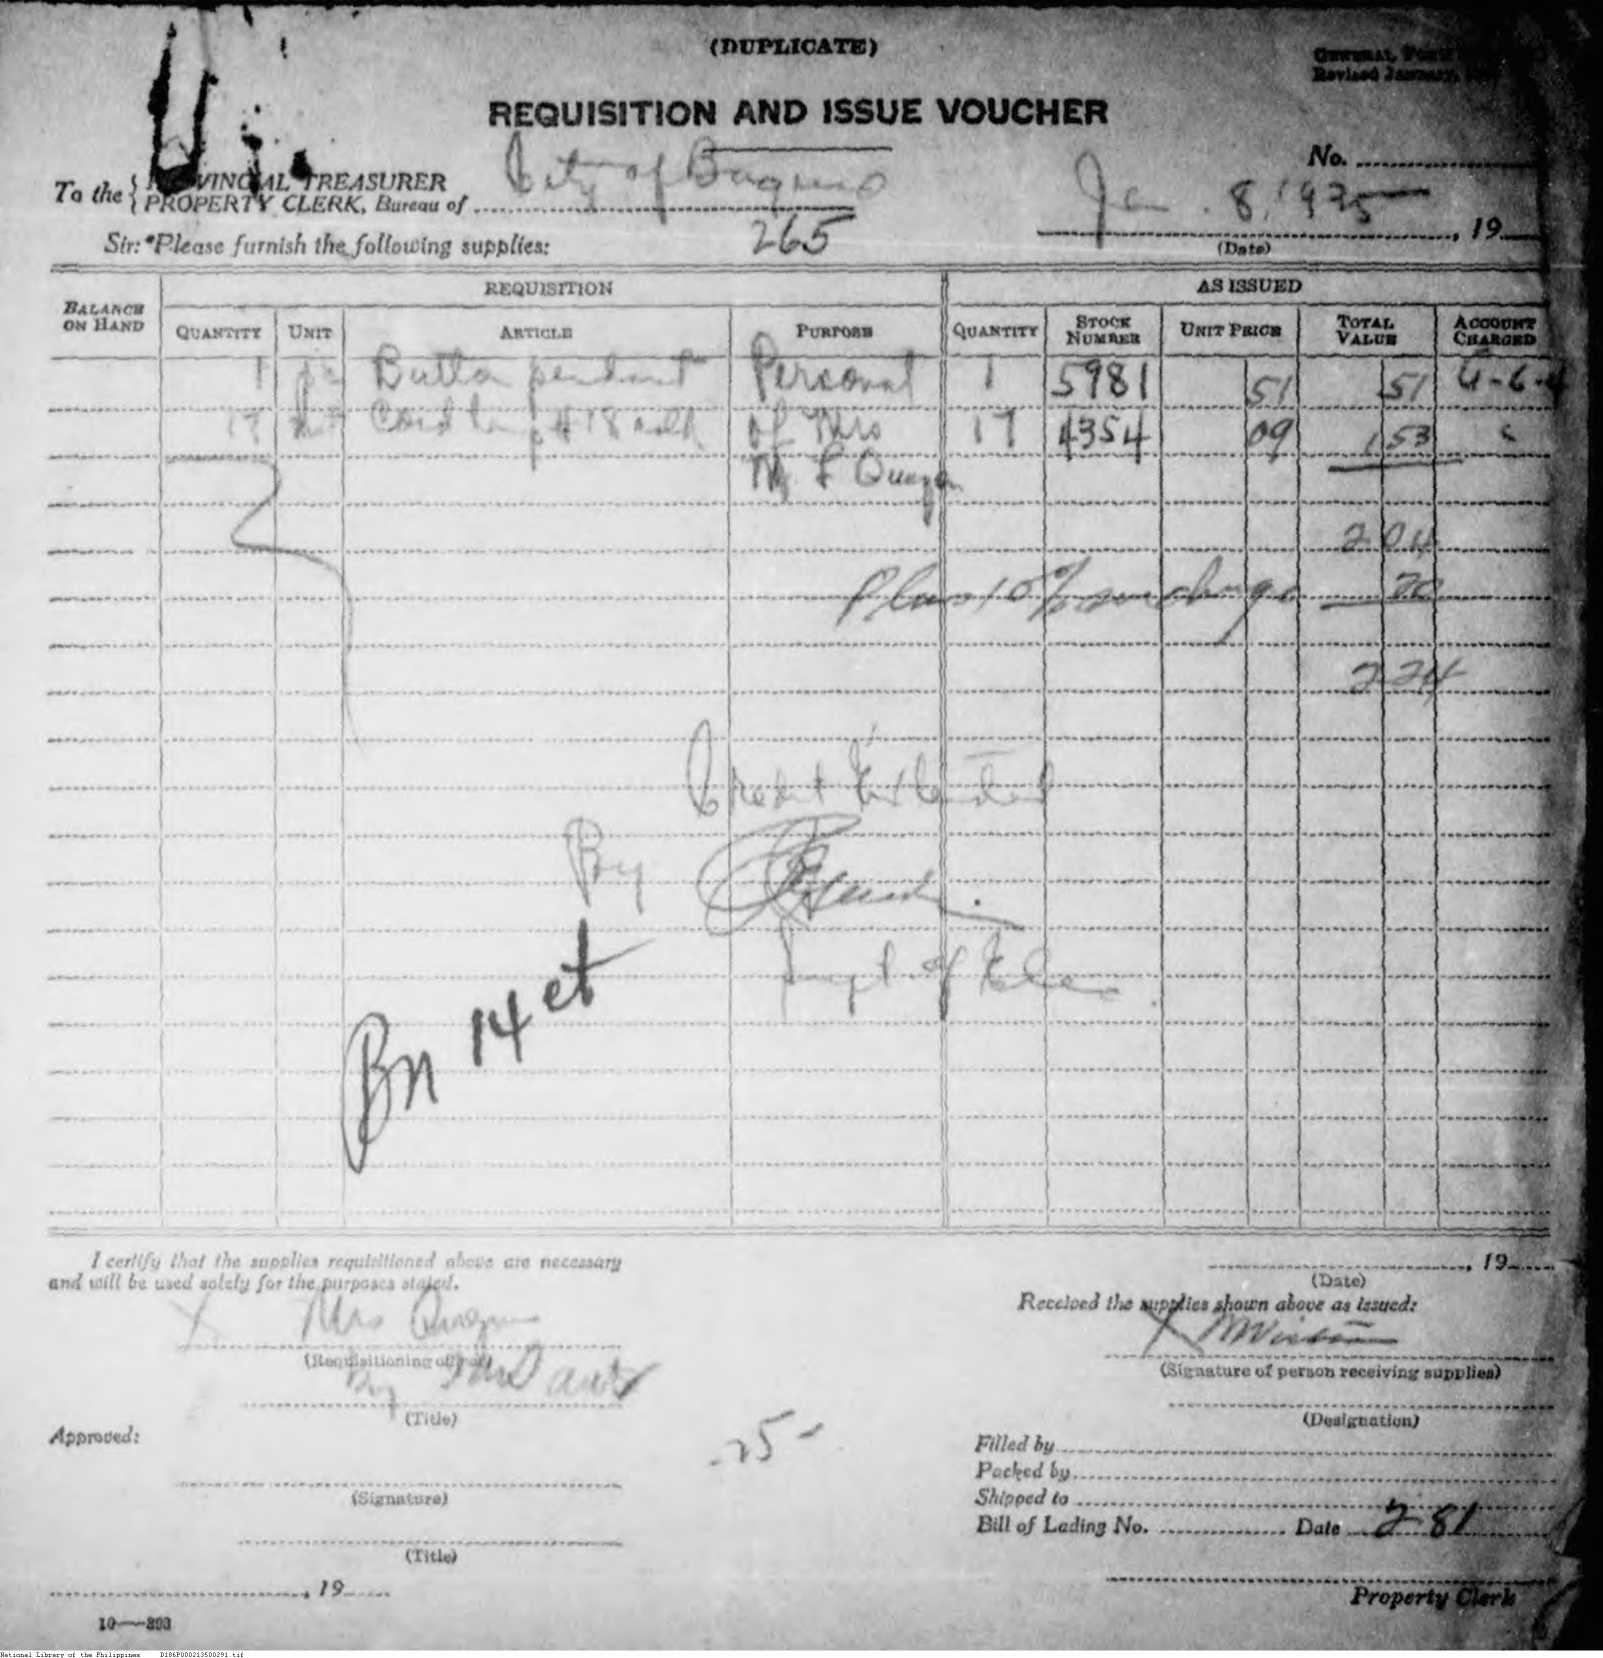 (DUPLICATE)
GENERAL FORM
Revised January,
REQUISITION AND ISSUE VOUCHER
No.
To the { PROVINCIAL TREASURER
PROPERTY CLERK, Bureau of City of Baguio
Jan. 8, 1935
, 19
(Date)
265
Sir: *Please furnish the following supplies:
BALANCE ON HAND
REQUISITION
AS ISSUED
QUANTITY UNIT ARTICLE PURPOSE QUANTITY STOCK NUMBER UNIT PRICE TOTAL VALUE ACCOUNT CHARGED
1 pc pendant Personal 1 5981 51 51 4-6-4
17 Cord #18 of Mrs 17 4354 09 1 53
M L Quezon
2 04
Plus 10% surcharge 20
2 24
Credit Extended
By
Supt of Elec.
Bn 14 et
I certify that the supplies requisitioned above are necessary
and will be used solely for the purposes stated.
Mrs Quezon
(Requisitioning officer)
By
(Title)
, 19
(Date)
Received the supplies shown above as issued:
(Signature of person receiving supplies)
(Designation)
Approved:
25-
(Signature)
(Title)
, 19
Filled by
Packed by
Shipped to
Bill of Lading No. Date 281
Property Clerk
10—893
National Library of the Philippines D186P000213500291.tif